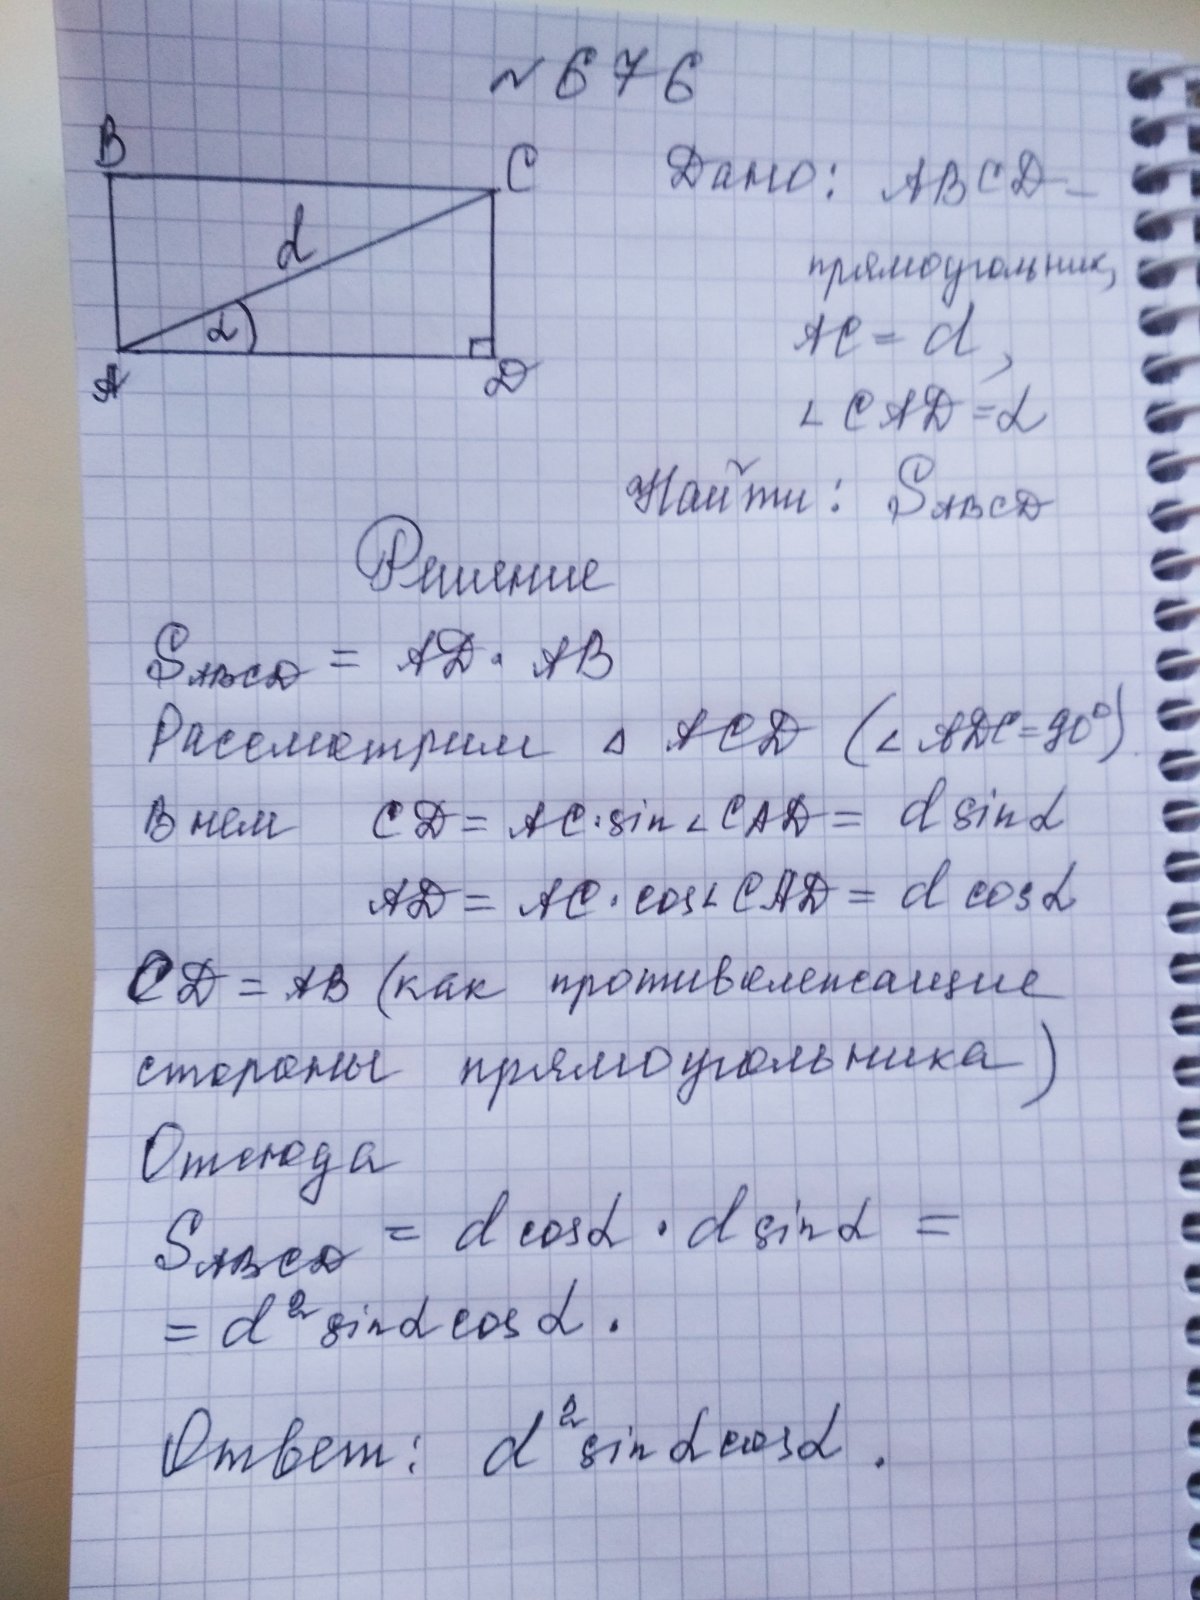 № 676
B
C
d
α
A
D
Дано: ABCD –
прямоугольник,
AC = d,
∠CAD = α
Найти: S_ABCD
Решение
S_ABCD = AD · AB
Рассмотрим △ ACD (∠ADC = 90°)
В нем CD = AC · sin∠CAD = d sinα
AD = AC · cos∠CAD = d cosα
CD = AB (как противолежащие
стороны прямоугольника)
Отсюда
S_ABCD = d cosα · d sinα =
= d² sinα cosα.
Ответ: d² sinα cosα.